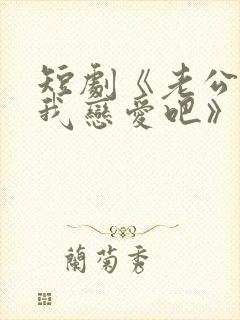 短劇《老公
我戀愛吧》
蘭菊秀